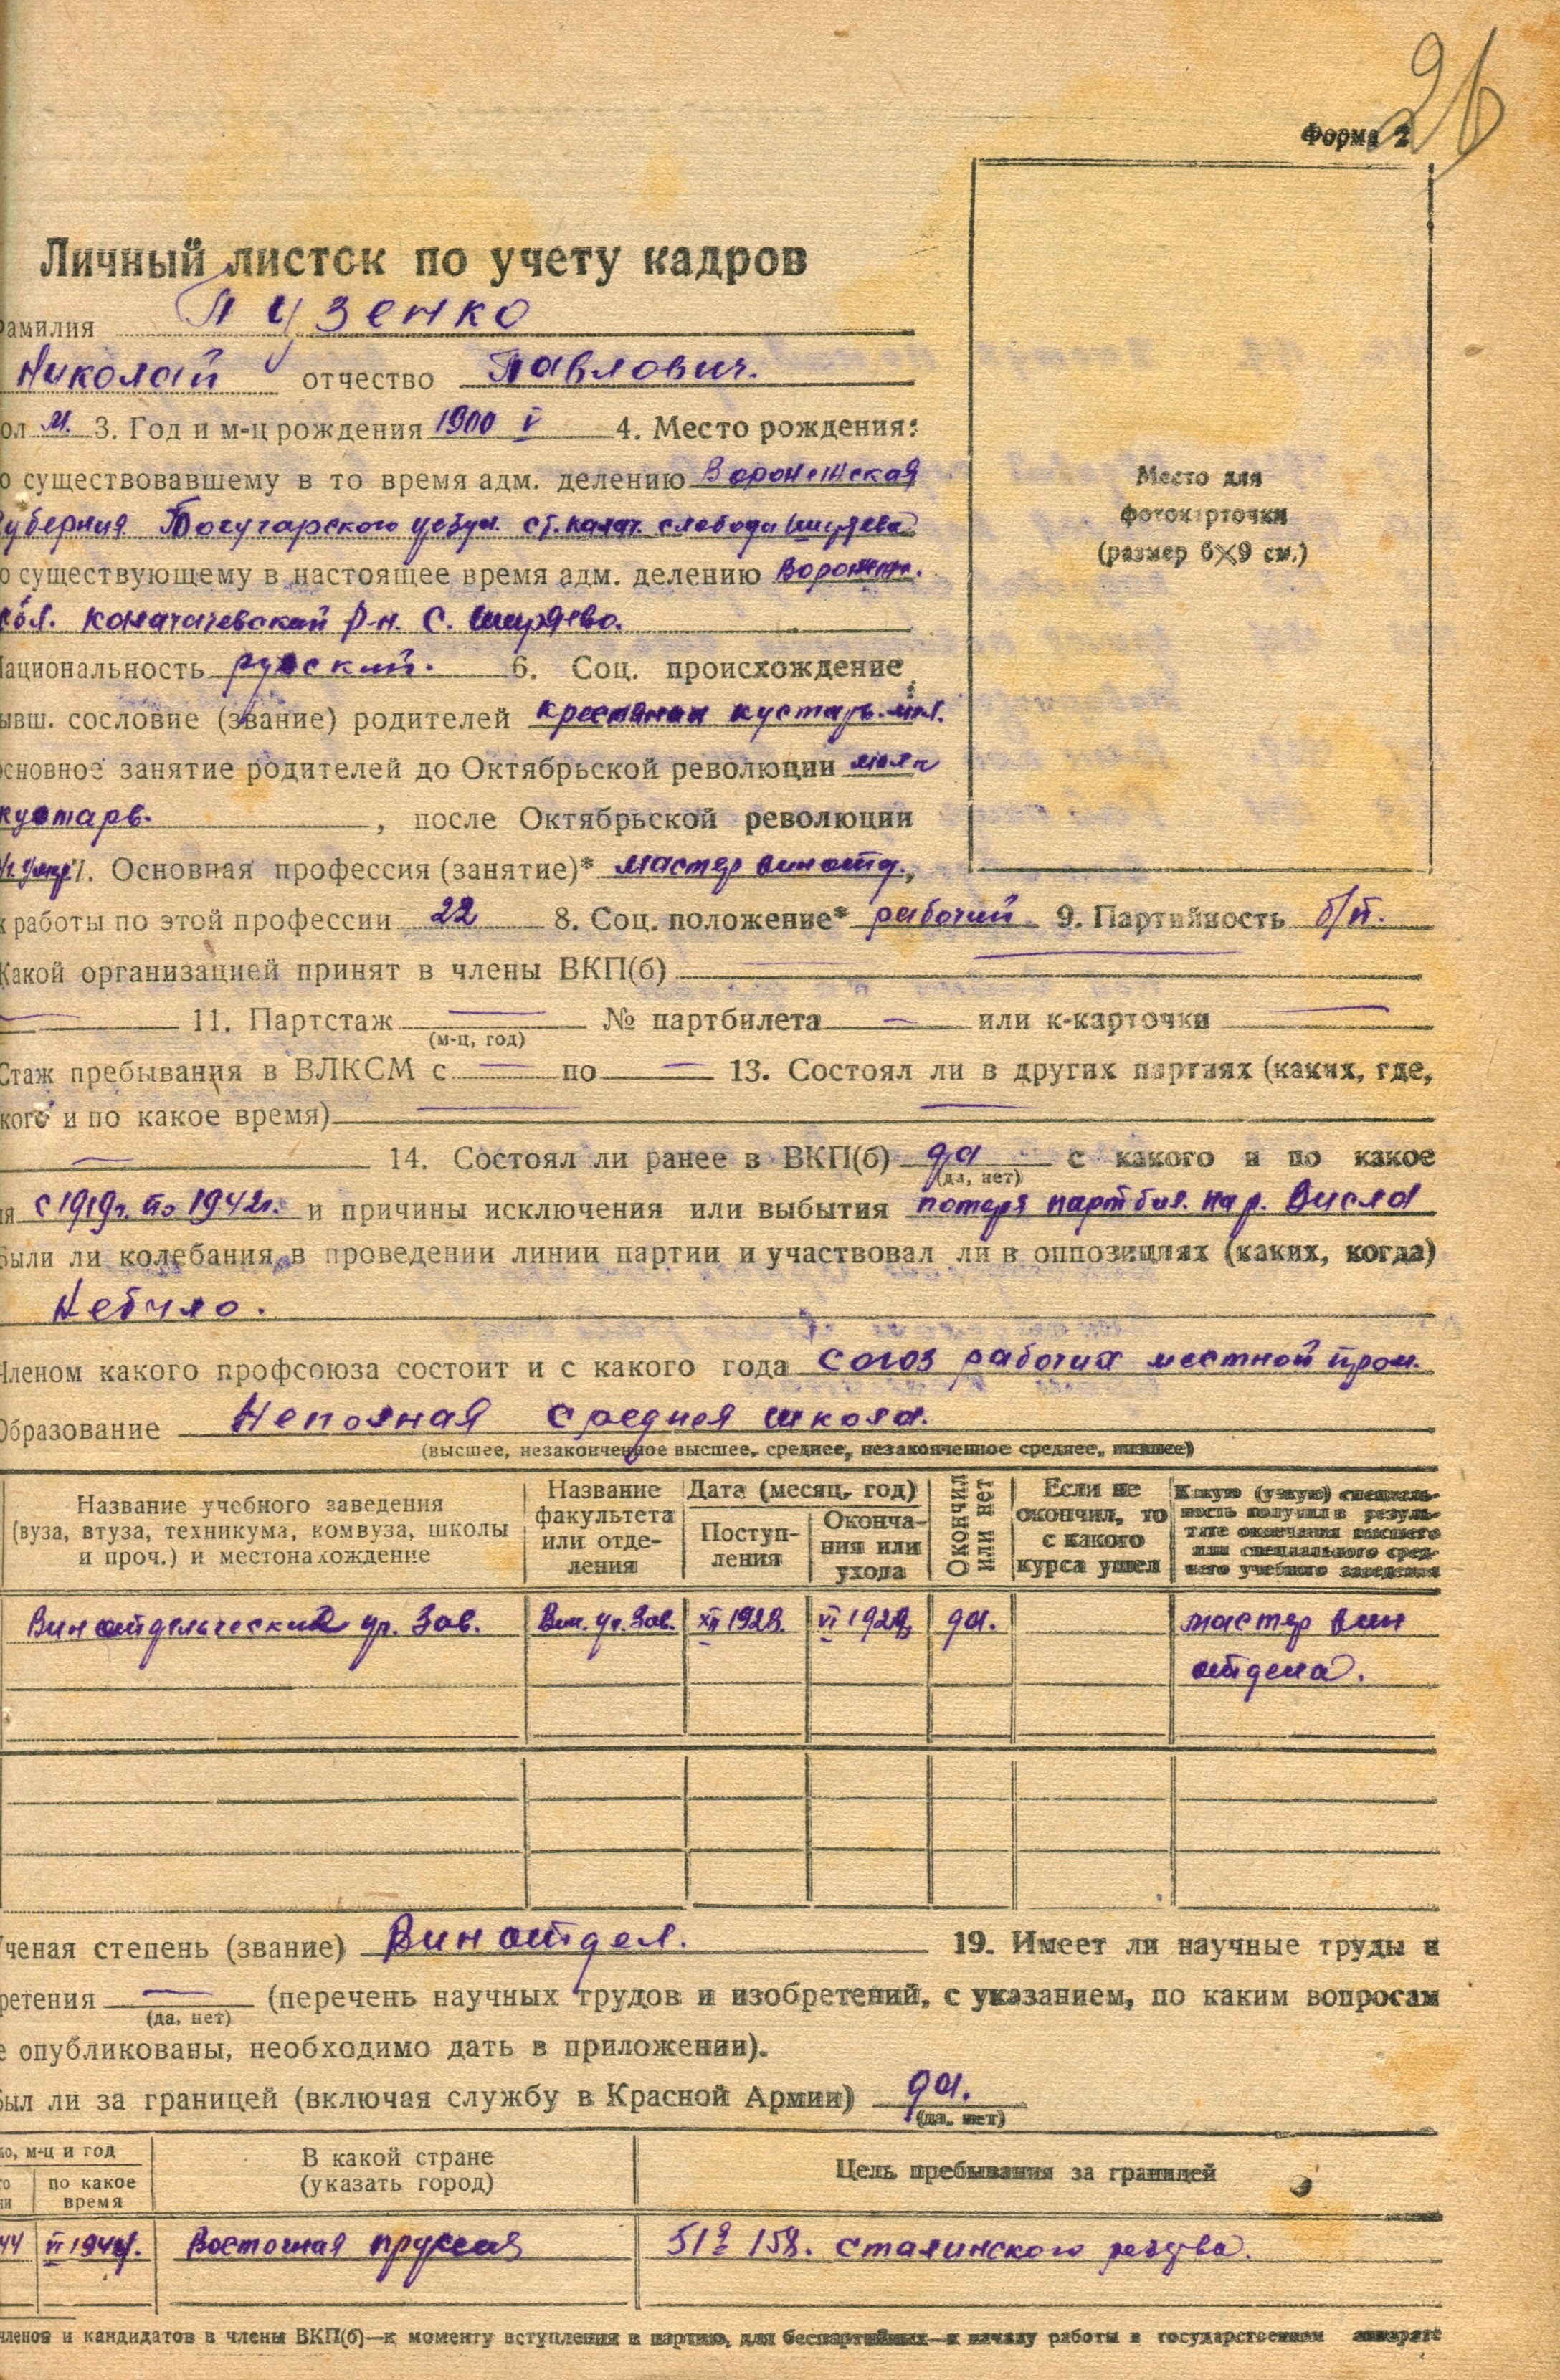 26
Форма 2
Личный листок по учету кадров
Фамилия Пузенко
Николай отчество Павлович.
ол м. 3. Год и м-ц рождения 1900 V 4. Место рождения:
о существовавшему в то время адм. делению Воронежская
губерния Богучарского уезда. ст. калач. слобода Ширяева
о существующему в настоящее время адм. делению Воронеж.
обл. р-н. с. Ширяево.
Национальность русский. 6. Соц. происхождение:
ывш. сословие (звание) родителей крестянин кустарь.
основное занятие родителей до Октябрьской революции
кустарь. , после Октябрьской революции
7. Основная профессия (занятие)* мастер
ж работы по этой профессии 22 8. Соц. положение* рабочий 9. Партийность б/п.
Какой организацией принят в члены ВКП(б) —
— 11. Партстаж — № партбилета — или к-карточки —
(м-ц, год)
Стаж пребывания в ВЛКСМ с — по — 13. Состоял ли в других партиях (каких, где,
кого и по какое время) —
— 14. Состоял ли ранее в ВКП(б) да с какого и по какое
(да, нет)
ия с 1919г. по 1942г. и причины исключения или выбытия потеря партбил. на р. Висла
Были ли колебания в проведении линии партии и участвовал ли в оппозициях (каких, когда)
Небыло.
Членом какого профсоюза состоит и с какого года Союз рабочих местной пром.
Образование Неполная средняя школа.
(высшее, незаконченное высшее, среднее, незаконченное среднее, низшее)
Название учебного заведения
(вуза, втуза, техникума, комвуза, школы
и проч.) и местонахождение
Название
факультета
или отде-
ления
Дата (месяц, год)
Поступ-
ления
Оконча-
ния или
ухода
Окончил
или нет
Если не
окончил, то
с какого
курса ушел
Какую (узкую) специаль-
ность получил в резуль-
тате окончания высшего
или специального сред-
него учебного заведения
уч. Зав. Вин. уч. Зав. XII 1928. VI 1929. да. мастер вин
отдела.
Ученая степень (звание) Виноотдел. 19. Имеет ли научные труды и
ретения — (перечень научных трудов и изобретений, с указанием, по каким вопросам
(да, нет)
е опубликованы, необходимо дать в приложении).
Был ли за границей (включая службу в Красной Армии) да.
(да, нет)
ко, м-ц и год
го
ни
по какое
время
В какой стране
(указать город)
Цель пребывания за границей
44 VI 1944. Восточная пруссия 519 158. сталинского резерва.
членов и кандидатов в члены ВКП(б)—к моменту вступления в партию, для беспартийных—к началу работы в государственном аппарате